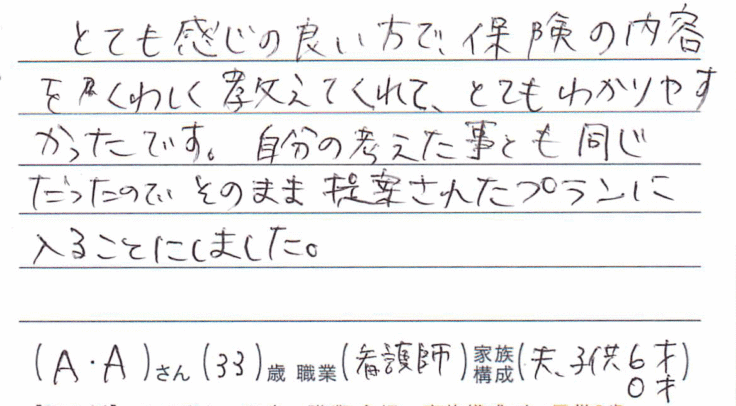 とても感じの良い方で、保険の内容
をくわしく教えてくれて、とてもわかりやす
かったです。自分の考えた事とも同じ
だったのでそのまま提案されたプランに
入ることにしました。
(A・A)さん(33)歳 職業(看護師)家族構成(夫、子供6才
0才)